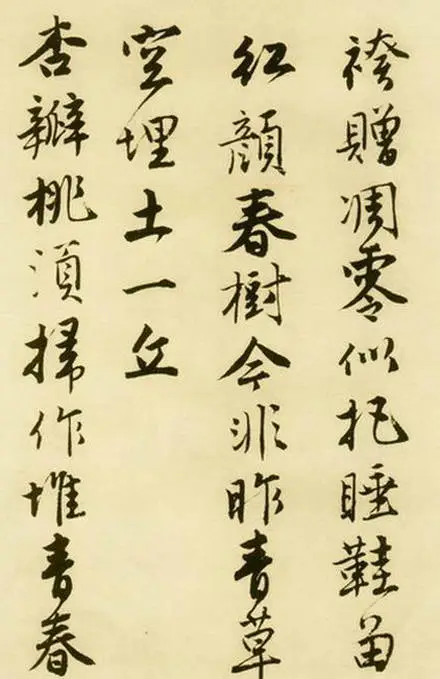 袴贈凋零似把睡鞋留
紅顏春樹今非昨青草
空埋土一丘
杏瓣桃湏掃作堆青春